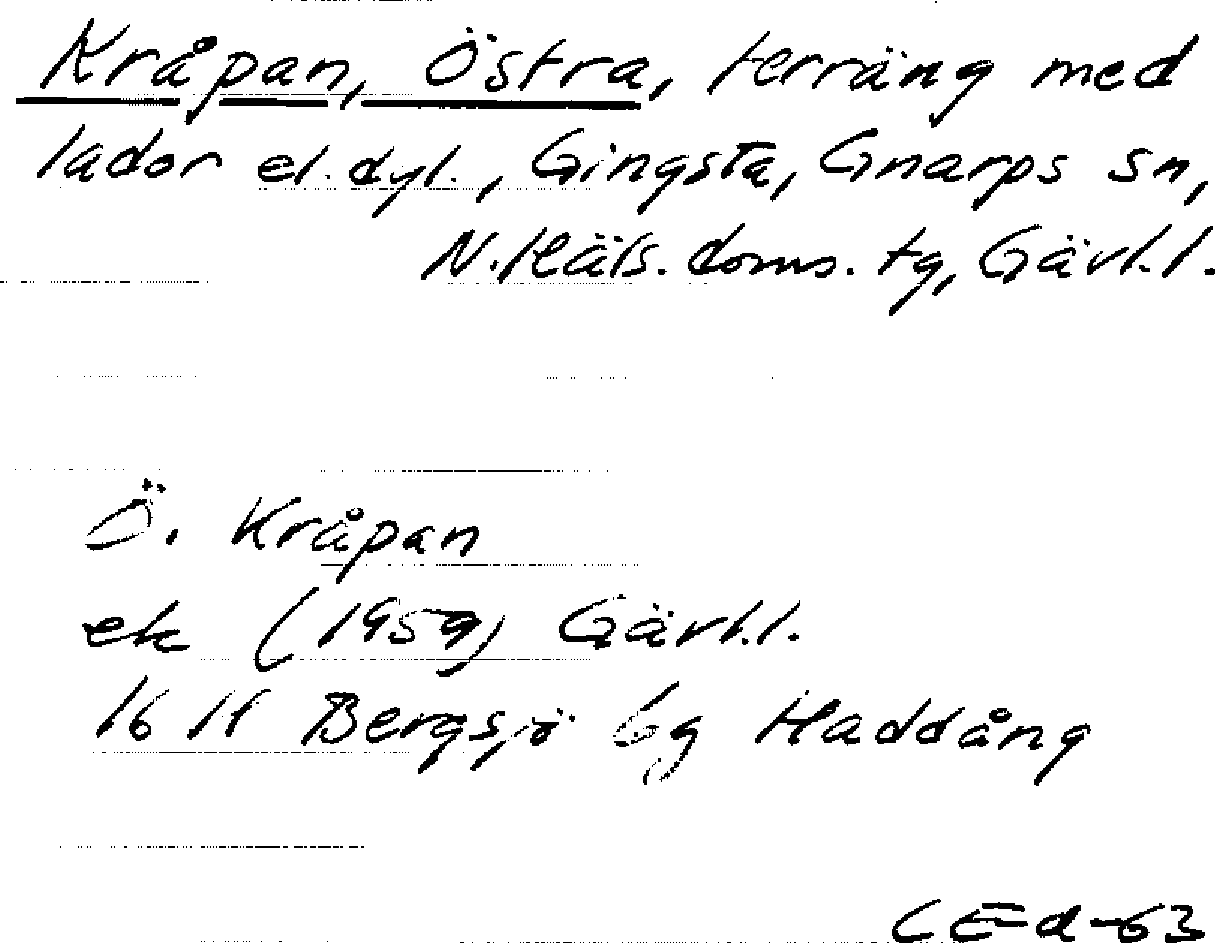 Kråpan, Östra, terräng med
lador el. dyl., Gingsta, Gnarps sn,
N. Häls. doms. tg, Gävl. l.
Ö. Kråpan
ek (1959) Gävl. l.
16 H Bergsjö 6g Haddång
CEd-63